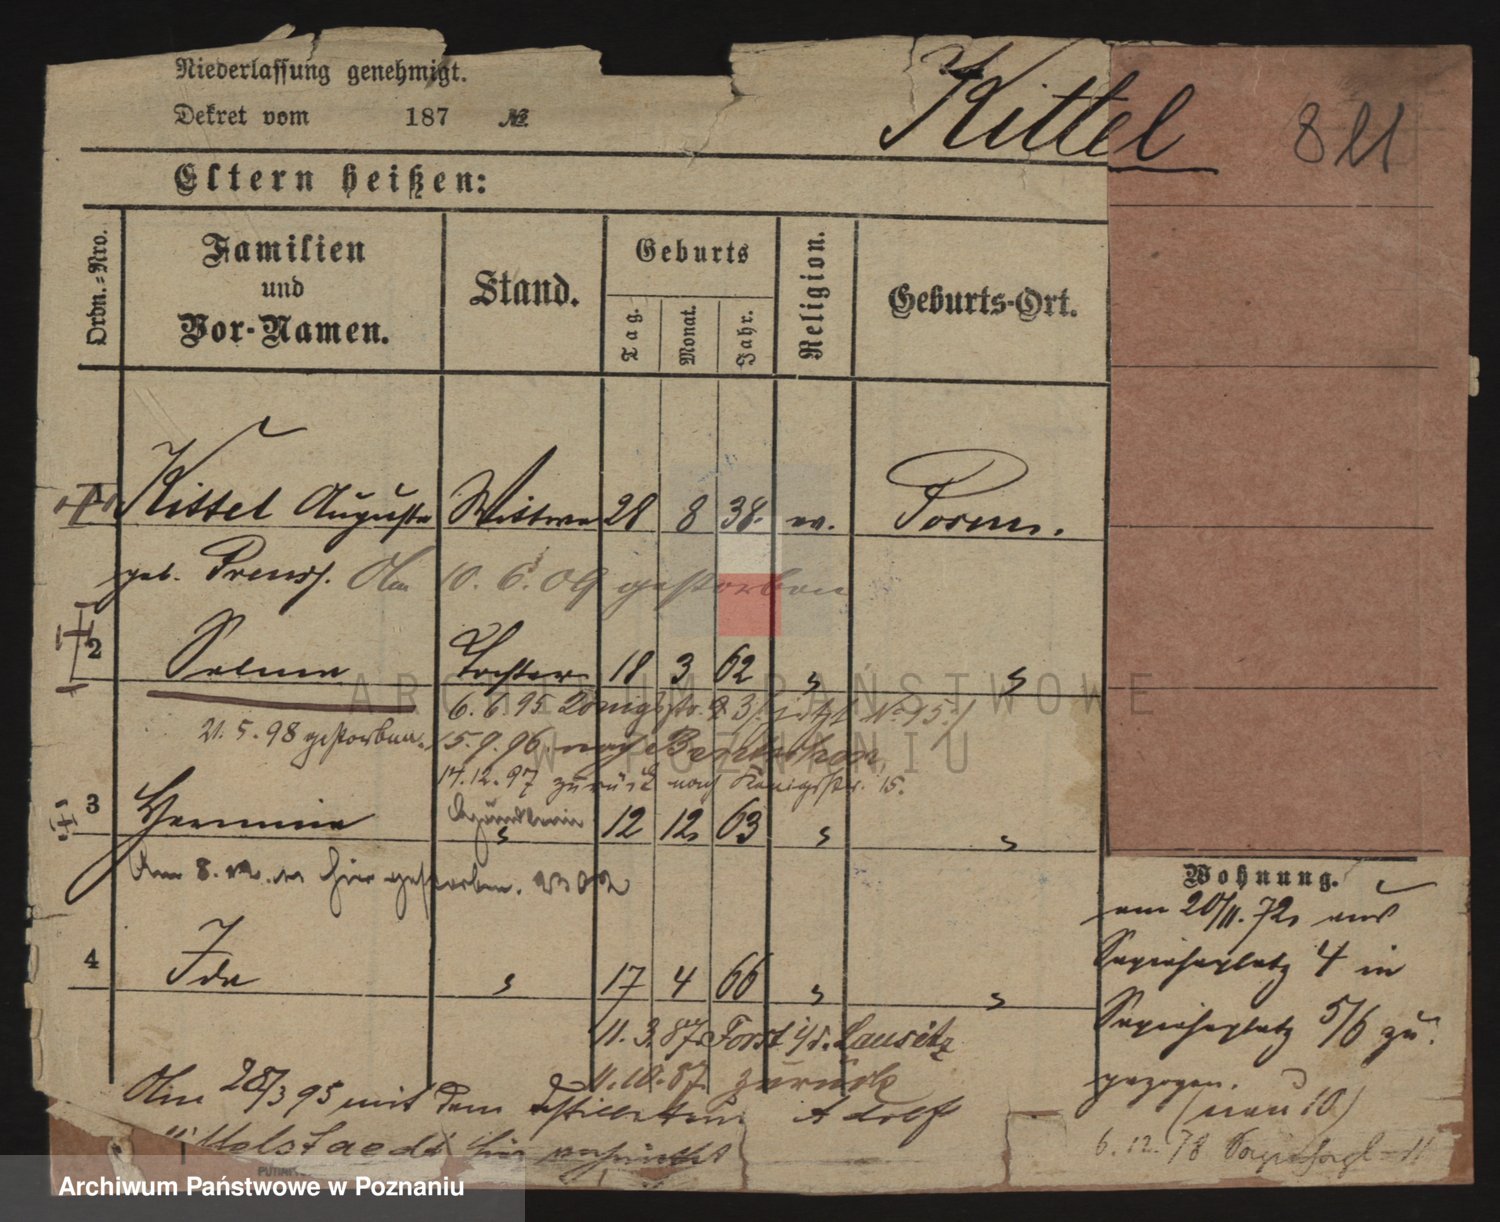 Niederlassung genehmigt.
Dekret vom 187 №
Kittel 811
Eltern heißen:
Ordn.-Nro.
Familien
und
Vor-Namen.
Stand.
Geburts
Tag.
Monat.
Jahr.
Religion.
Geburts-Ort.
1 Kittel Auguste Wittwe 28 8 38. ev. Posen.
geb. Preuss. Am 10. 6. 09 gestorben
2 Selma Tochter 18 3 62 " "
6. 6. 95 Königsstr. jetzt No 15
21. 5. 98 gestorben. 15. 9. 96 nach
14. 12. 97 zurück nach Königsstr. 15.
3 Hermine " 12 12 63 " "
Am 8. hier gestorben.
4 Ida " 17 4 66 " "
11. 3. 87 Forst i/d. Lausitz
11. 10. 87 zurück
Am 28/3 95 mit dem Adolf
hier
Wohnung.
am 20/11. 72 aus
Sapiehaplatz 4 in
Sapiehaplatz 5/6 zu
gezogen.
(neu 10)
6. 12. 78 11
ARCHIWUM PAŃSTWOWE
W POZNANIU
Archiwum Państwowe w Poznaniu